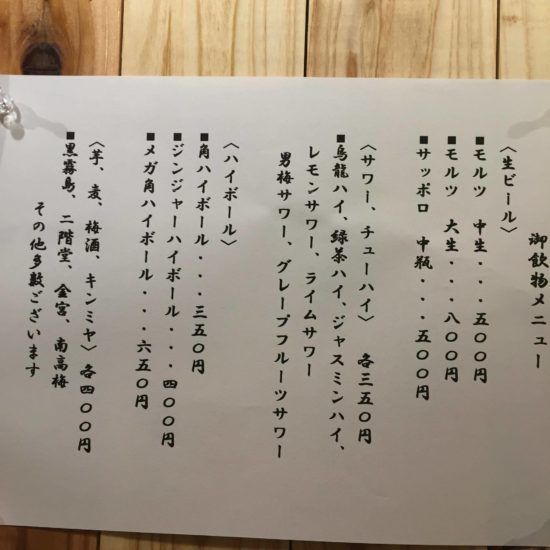 御飲物メニュー
〈生ビール〉
■モルツ 中生・・・五〇〇円
■モルツ 大生・・・八〇〇円
■サッポロ 中瓶・・・五〇〇円
〈サワー、チューハイ〉 各三五〇円
■烏龍ハイ、緑茶ハイ、ジャスミンハイ、
レモンサワー、ライムサワー
男梅サワー、グレープフルーツサワー
〈ハイボール〉
■角ハイボール・・・三五〇円
■ジンジャーハイボール・・・四〇〇円
■メガ角ハイボール・・・六五〇円
〈芋、麦、梅酒、キンミヤ〉各四〇〇円
■黒霧島、二階堂、金宮、南高梅
その他多数ございます